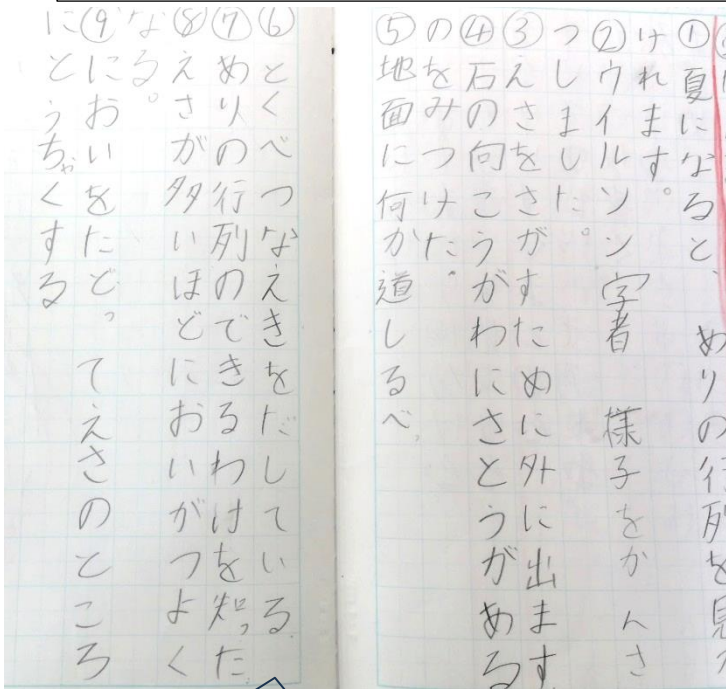 ①夏になると、めりの行列を見
けれます。
②ウイルソン字者 様子をかんさ
つしました。
③えさをさがすために外に出ます
④石の向こうがわにさとうがある
のをみつけた。
⑤地面に何か道しるべ、
⑥とくべつなえきをだしている。
⑦めりの行列のできるわけを知った
⑧えさが多いほどにおいがつよく
なる。
⑨においをたどってえさのところ
にとうちゃくする